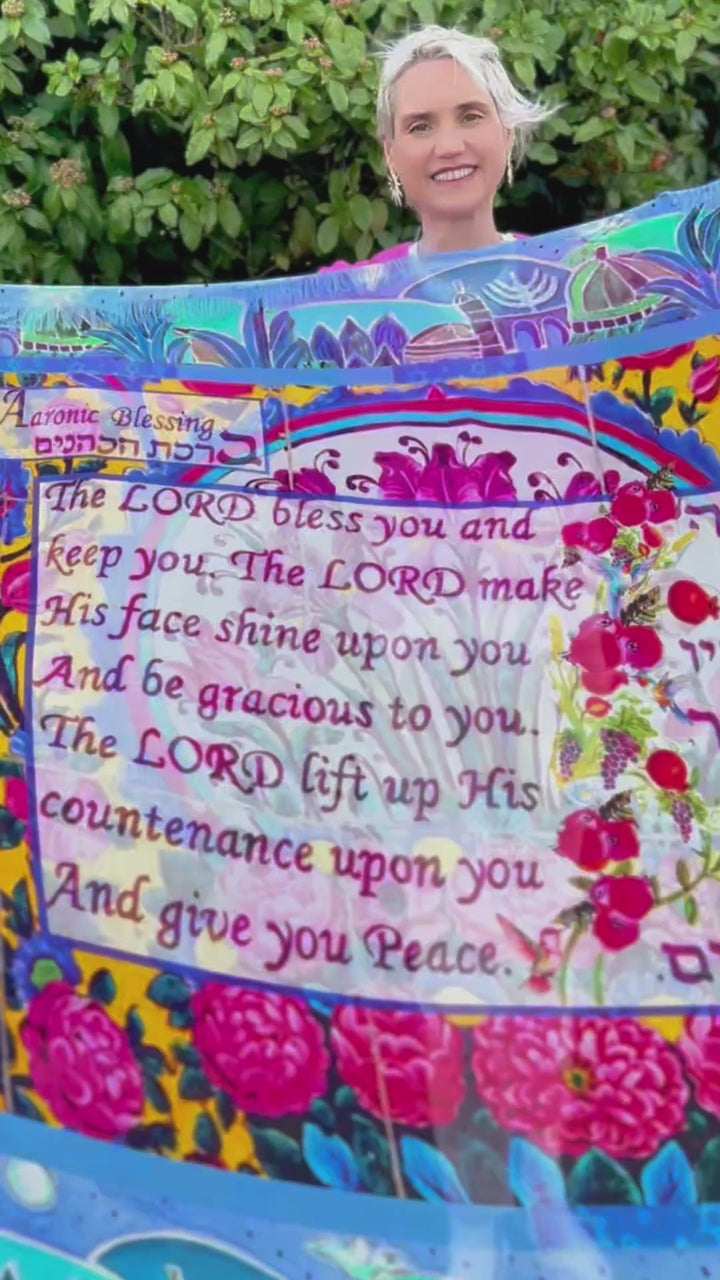 Aaronic Blessing
ברכת הכהנים
The LORD bless you and
keep you. The LORD make
His face shine upon you
And be gracious to you.
The LORD lift up His
countenance upon you
And give you Peace.